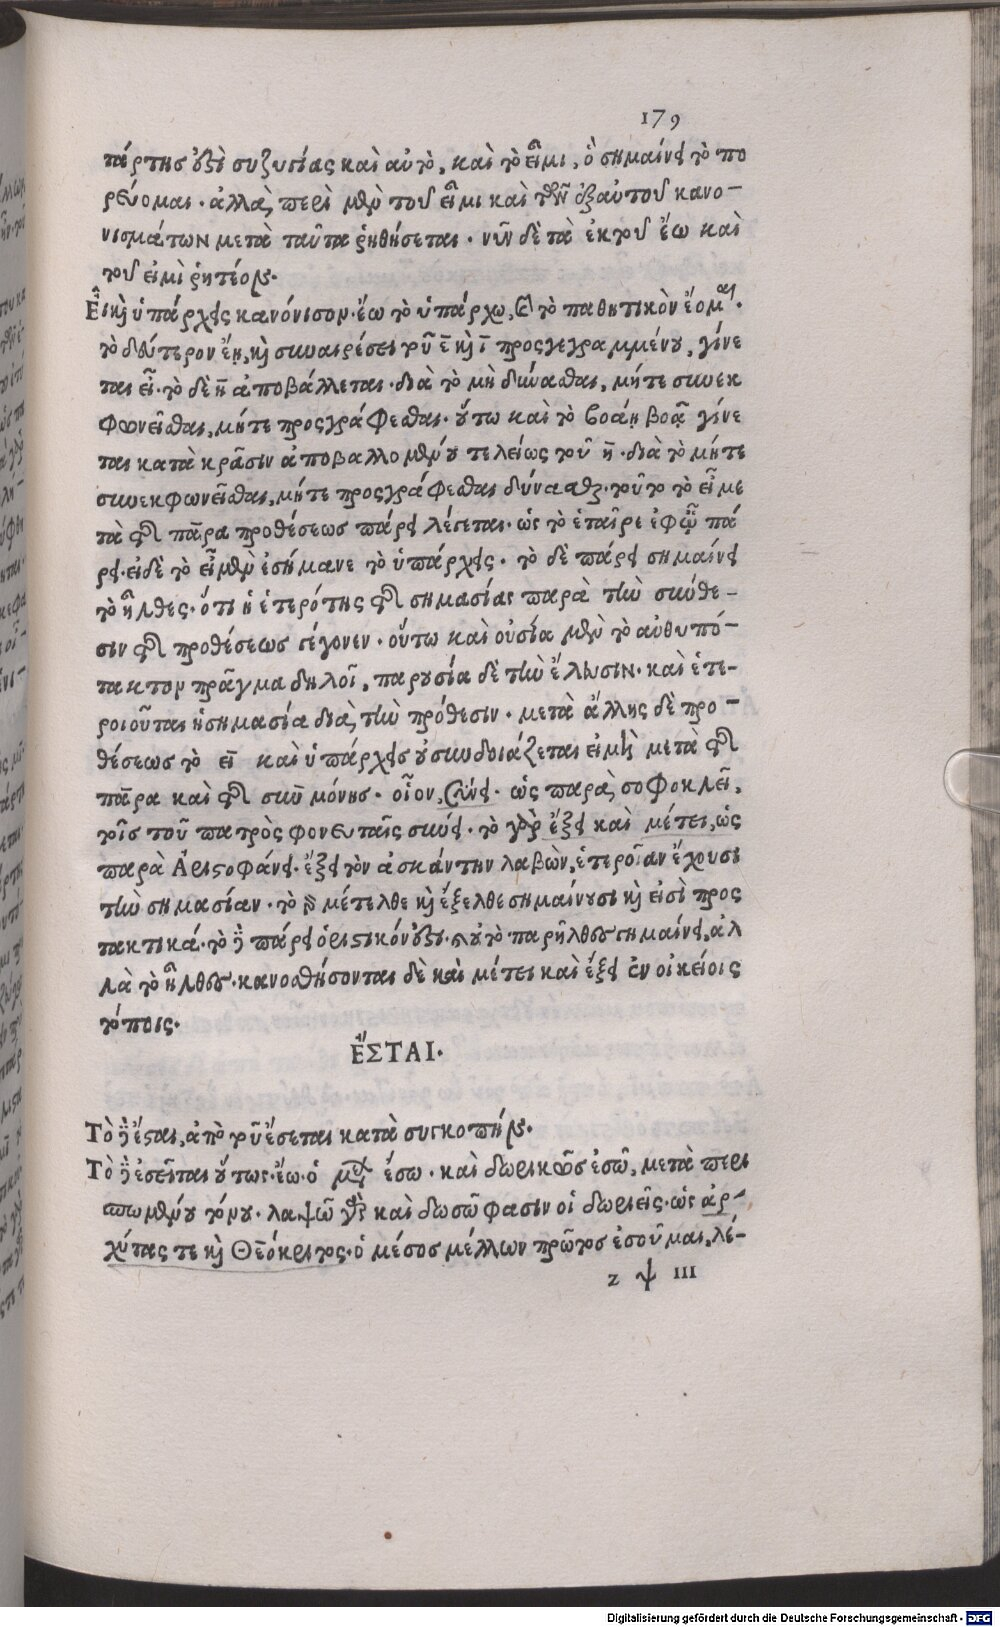 179
τάρτης ἐστὶ συζυγίας καὶ αὐτὸ, καὶ τὸ εἶμι, ὃ σημαίνει τὸ πο
ρεύομαι. ἀλλὰ περὶ μὲν τοῦ εἶμι καὶ τῶν ἐξ αὐτοῦ κανο-
νισμάτων μετὰ ταῦτα ῥηθήσεται. νῦν δὲ τὰ ἐκ τοῦ ἔω καὶ
τοῦ εἰμὶ ῥητέον.
Εἶ καὶ ὑπάρχεις κανόνισον. ἔω τὸ ὑπάρχω, καὶ τὸ παθητικὸν ἔομαι.
τὸ δεύτερον ἔῃ, καὶ συναιρέσει τοῦ ε̄ καὶ ῑ προσγεγραμμένου, γίνε
ται εἶ. τὸ δὲ η̄ ἀποβάλλεται. διὰ τὸ μὴ δύνασθαι, μήτε συνεκ
φωνεῖσθαι, μήτε προσγράφεσθαι. οὕτω καὶ τὸ βοάῃ βοᾷ γίνε
ται κατὰ κρᾶσιν ἀποβαλλομένου τελείως τοῦ η̄. διὰ τὸ μήτε
συνεκφωνεῖσθαι, μήτε προσγράφεσθαι δύνασθαι. τοῦτο τὸ εἶ με
τὰ τῆς πᾶρα προθέσεως πάρει λέγεται. ὡς τὸ ἑταῖρε ἐφ' ᾧ πά
ρει. εἰ δὲ τὸ εἶ μὲν ἐσήμανε τὸ ὑπάρχεις. τὸ δὲ πάρει σημαίνει
τὸ ἦλθες. ὅτι ἡ ἑτερότης τῆς σημασίας παρὰ τὴν σύνθε-
σιν τῆς προθέσεως γέγονεν. οὕτω καὶ οὐσία μὲν τὸ αὐθυπό-
τακτον πρᾶγμα δηλοῖ, παρουσία δὲ τὴν ἔλευσιν. καὶ ἑτε-
ροιοῦται ἡ σημασία διὰ τὴν πρόθεσιν. μετὰ ἄλλης δὲ προ-
θέσεως τὸ εἶ καὶ ὑπάρχεις οὐ συνδυάζεται εἰ μὴ μετὰ τῆς
πᾶρα καὶ τῆς σὺν μόνης. οἷον, σύνει. ὡς παρὰ σοφοκλεῖ,
τοῖς τοῦ πατρὸς φονευταῖς σύνει. τὸ γὰρ ἔξει καὶ μέτει, ὡς
παρὰ Ἀριστοφάνει. ἔξει τὸν ἀσκάντην λαβὼν, ἑτεροίαν ἔχουσι
τὴν σημασίαν. τὸ γὰρ μέτελθε καὶ ἔξελθε σημαίνουσι καὶ εἰσὶ προσ
τακτικά. τὸ δὲ πάρει ὁριστικόν ἐστι. οὐ τὸ παρῆλθον σημαίνει, ἀλ
λὰ τὸ ἦλθον. κανονισθήσονται δὲ καὶ μέτει καὶ ἔξει ἐν οἰκείοις
τόποις.
ἜΣΤΑΙ.
Τὸ δὲ ἔσται, ἀπὸ τοῦ ἔσεται κατὰ συγκοπήν.
Τὸ δὲ ἐσεῖται οὕτως. ἔω. ὁ μέλλων ἔσω. καὶ δωρικῶς ἐσῶ, μετὰ περι
σπωμένου τόνου. λαψῶ γὰρ καὶ δωσῶ φασιν οἱ δωριεῖς. ὡς ἀρ-
χύτας τε καὶ Θεόκριτος. ὁ μέσος μέλλων πρῶτος ἐσοῦμαι, λέ-
z ψ III
Digitalisierung gefördert durch die Deutsche Forschungsgemeinschaft - DFG